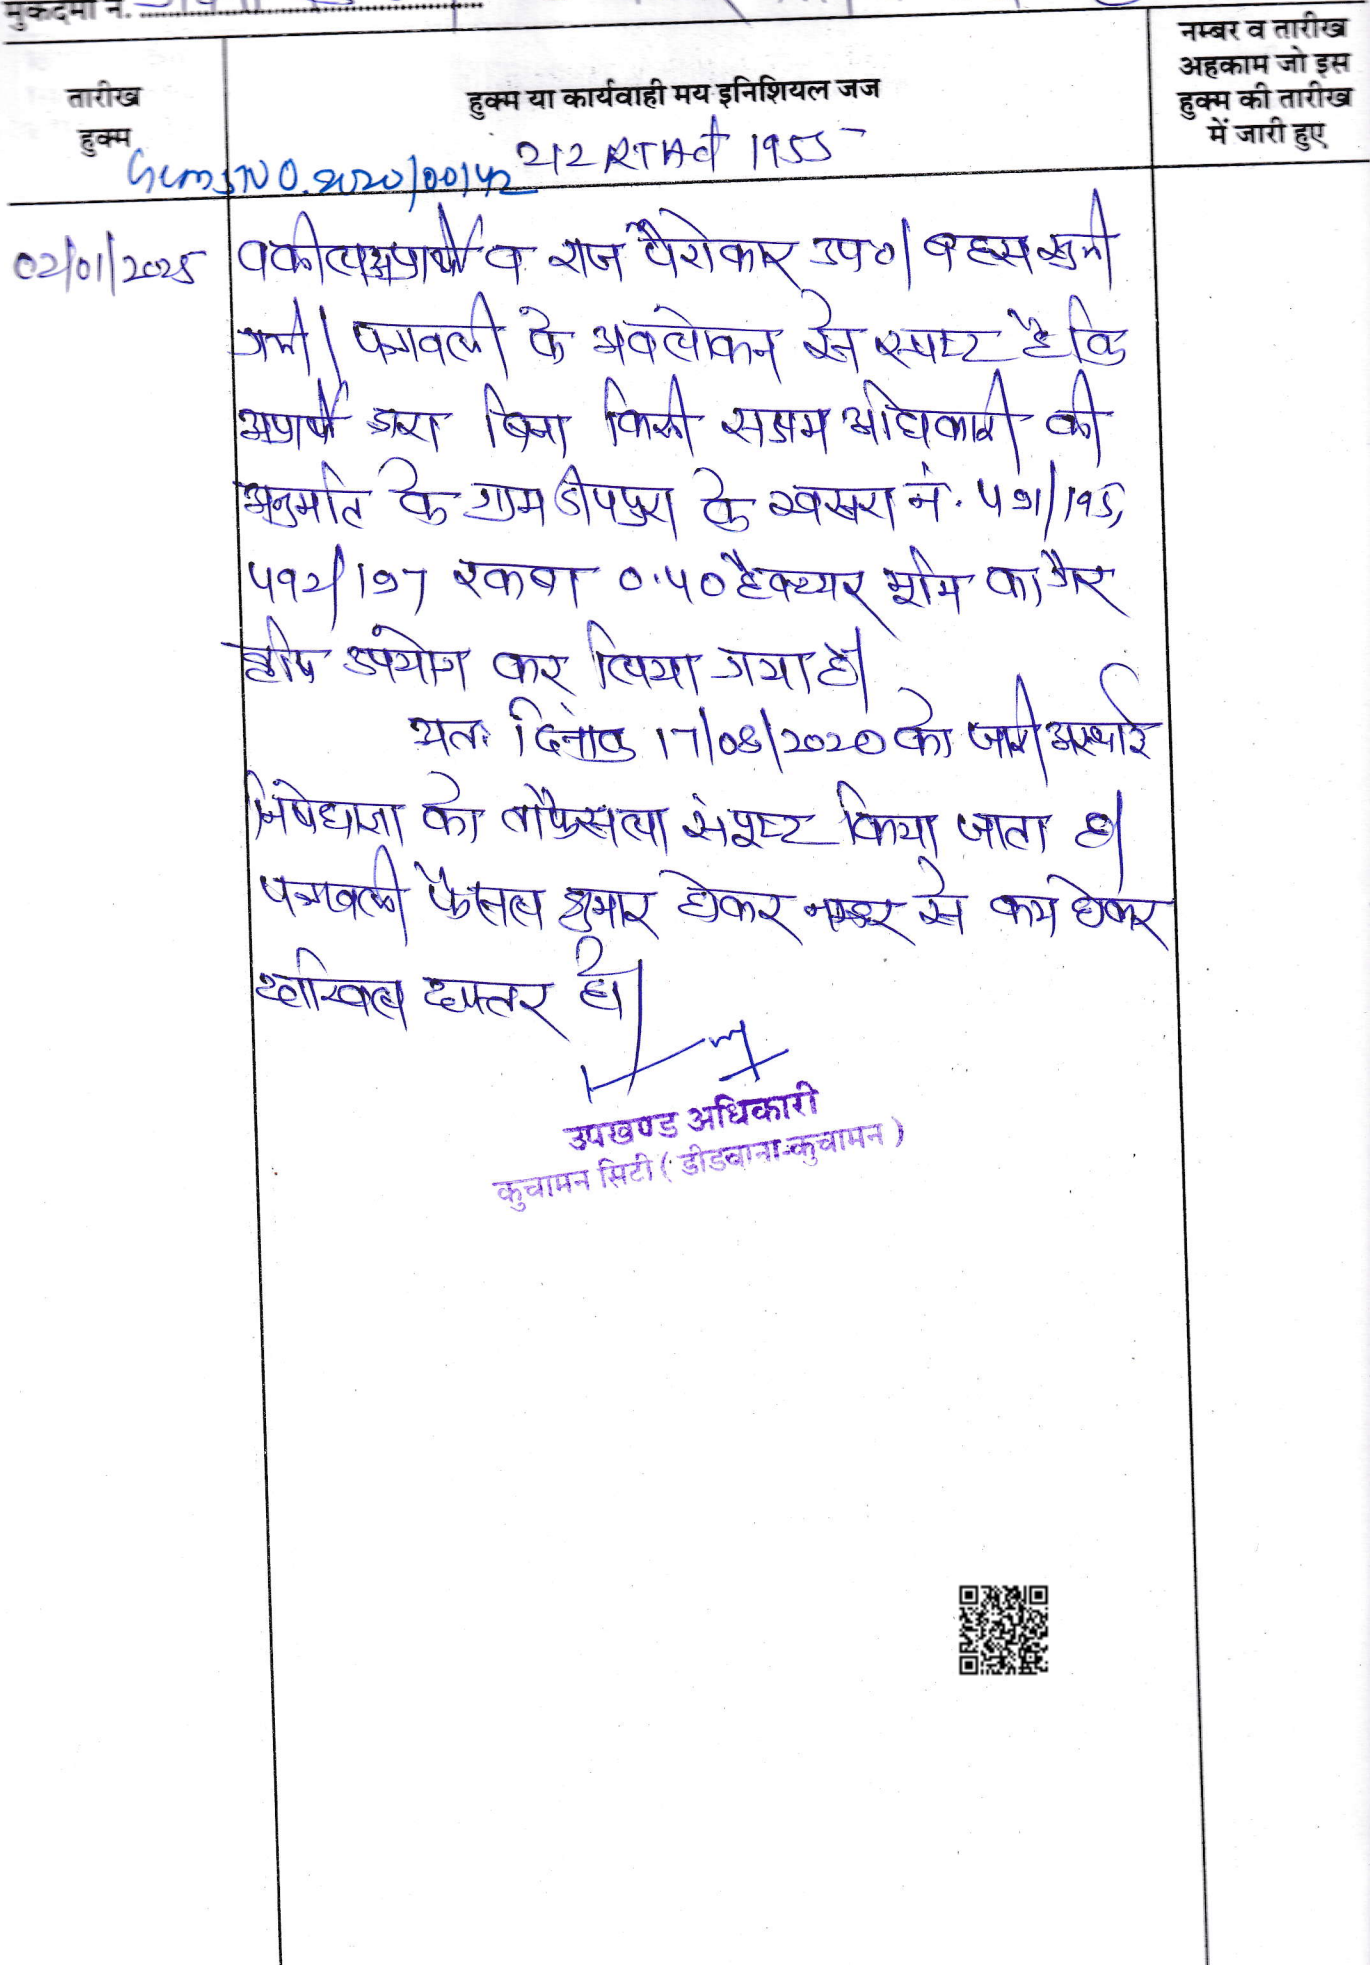 मुकदमा नं.
तारीख
हुक्म
हुक्म या कार्यवाही मय इनिशियल जज
नम्बर व तारीख
अहकाम जो इस
हुक्म की तारीख
में जारी हुए
212 RTAct 1955
GCMS NO. 2020/00142
02/01/2025
वकील अप्रार्थी व राज पैरोकार उप०। बहस सुनी
गयी। पत्रावली के अवलोकन से स्पष्ट है कि
अप्रार्थी द्वारा बिना किसी सक्षम अधिकारी की
अनुमति के ग्राम दीपपुरा के खसरा नं. 491/195,
492/197 रकबा 0.40 हैक्टयर भूमि का गैर
कृषि उपयोग कर लिया गया है।
अतः दिनांक 17/08/2020 को जारी अस्थाई
निषेधाज्ञा को ताफैसला संपुष्ट किया जाता है।
पत्रावली फैसल शुमार होकर नम्बर से कम होकर
दाखिल दफ्तर हो।
उपखण्ड अधिकारी
कुचामन सिटी ( डीडवाना-कुचामन )